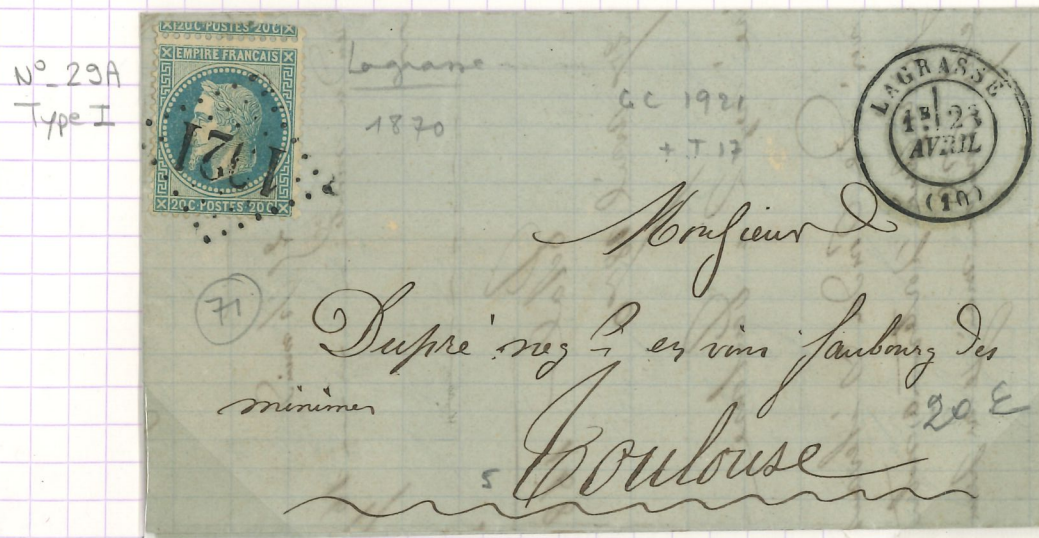 N° 29A
Type I
20 C POSTES 20 C
EMPIRE FRANÇAIS
20 C POSTES 20 C
1921
Lagrasse
1870
GC 1921
+ T 17
LAGRASSE
1E 23
AVRIL
(10)
Monsieur
71
Dupré négt en vins faubourg des
minimes
20 €
Toulouse
5